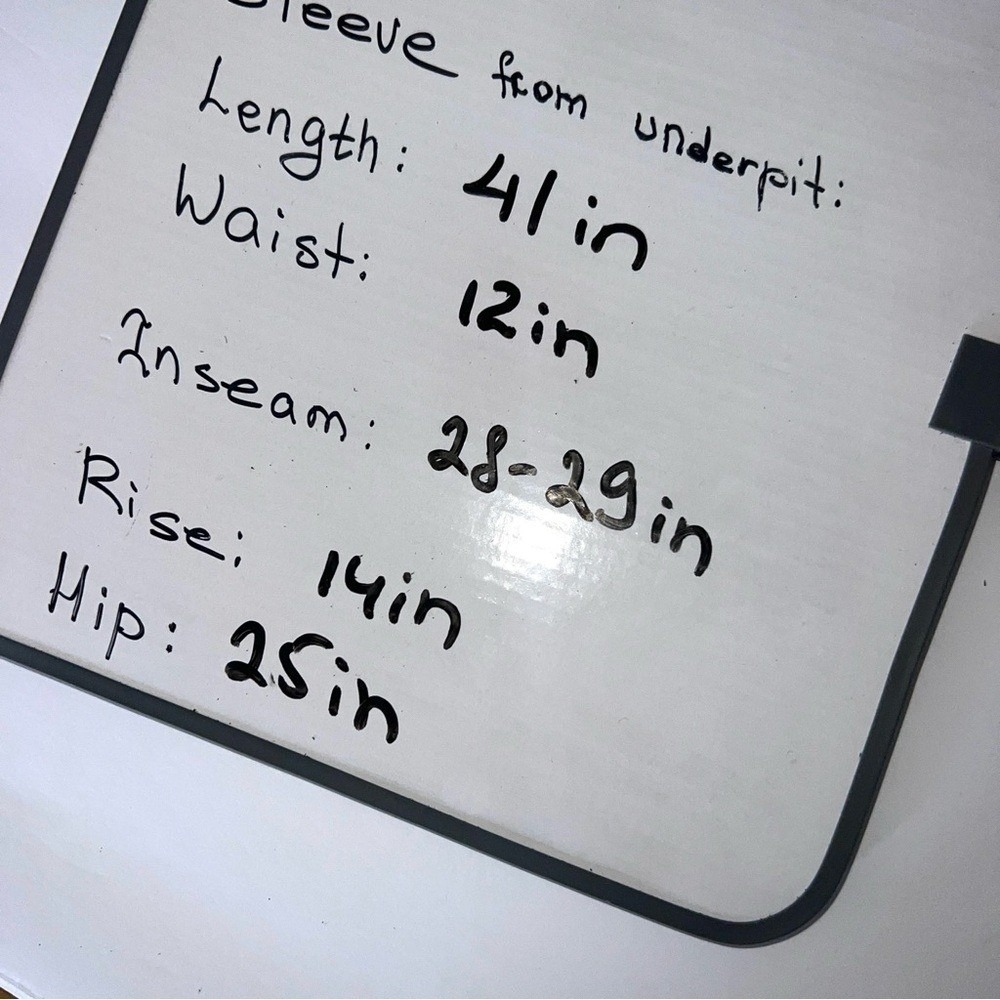 Sleeve from underpit:
Length: 41in
Waist: 12in
Inseam: 28-29in
Rise: 14in
Hip: 25in